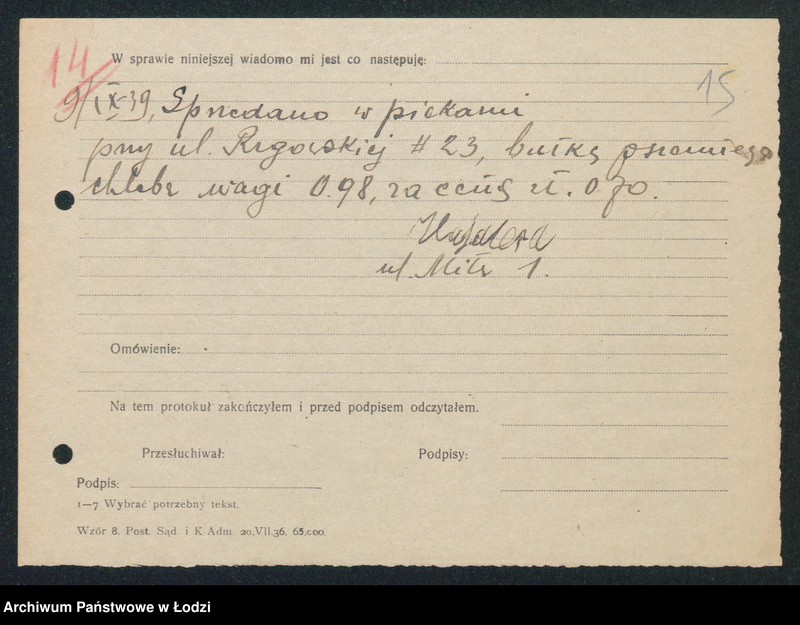 14
15
W sprawie niniejszej wiadomo mi jest co następuję:
9/IX-39, Sprzedano w piekarni
przy ul. Rzgowskiej # 23, bułkę pszennego
chleba wagi 0.98, za cenę zł. 0.70.
ul. Miła 1.
Omówienie:
Na tem protokuł zakończyłem i przed podpisem odczytałem.
Przesłuchiwał: Podpisy:
Podpis:
1—7 Wybrać potrzebny tekst.
Wzór 8. Post. Sąd. i K-Adm. 20.VII.36. 65.000.
Archiwum Państwowe w Łodzi